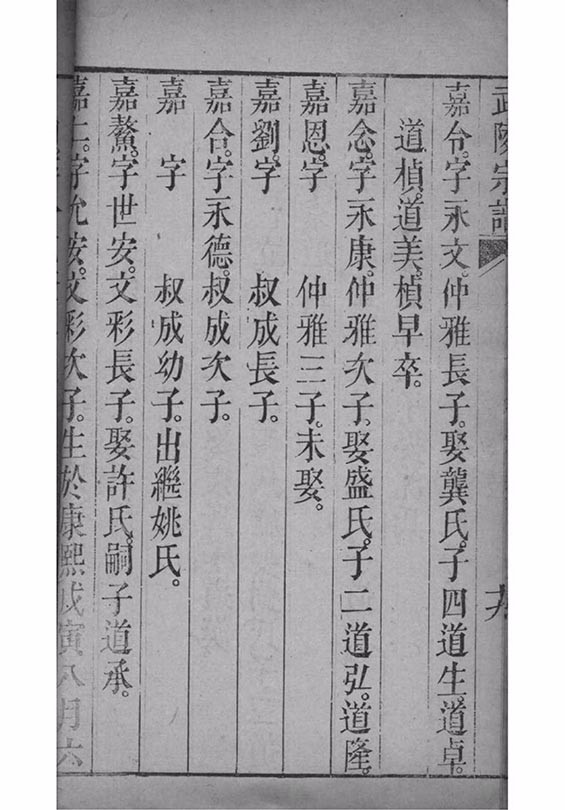 武陵宗譜
嘉令。字永文。仲雅長子。娶龔氏。子四道生。道卓。
道楨。道美。楨早卒。
嘉念。字永康。仲雅次子。娶盛氏。子二道弘。道隆。
嘉恩。字 仲雅三子。未娶。
嘉劉。字 叔成長子。
嘉合。字永德。叔成次子。
嘉 字 叔成幼子。出繼姚氏。
嘉鰲。字世安。文彩長子。娶許氏。嗣子道承。
嘉仁。字允安。文彩次子。生於康熙戊寅八月六